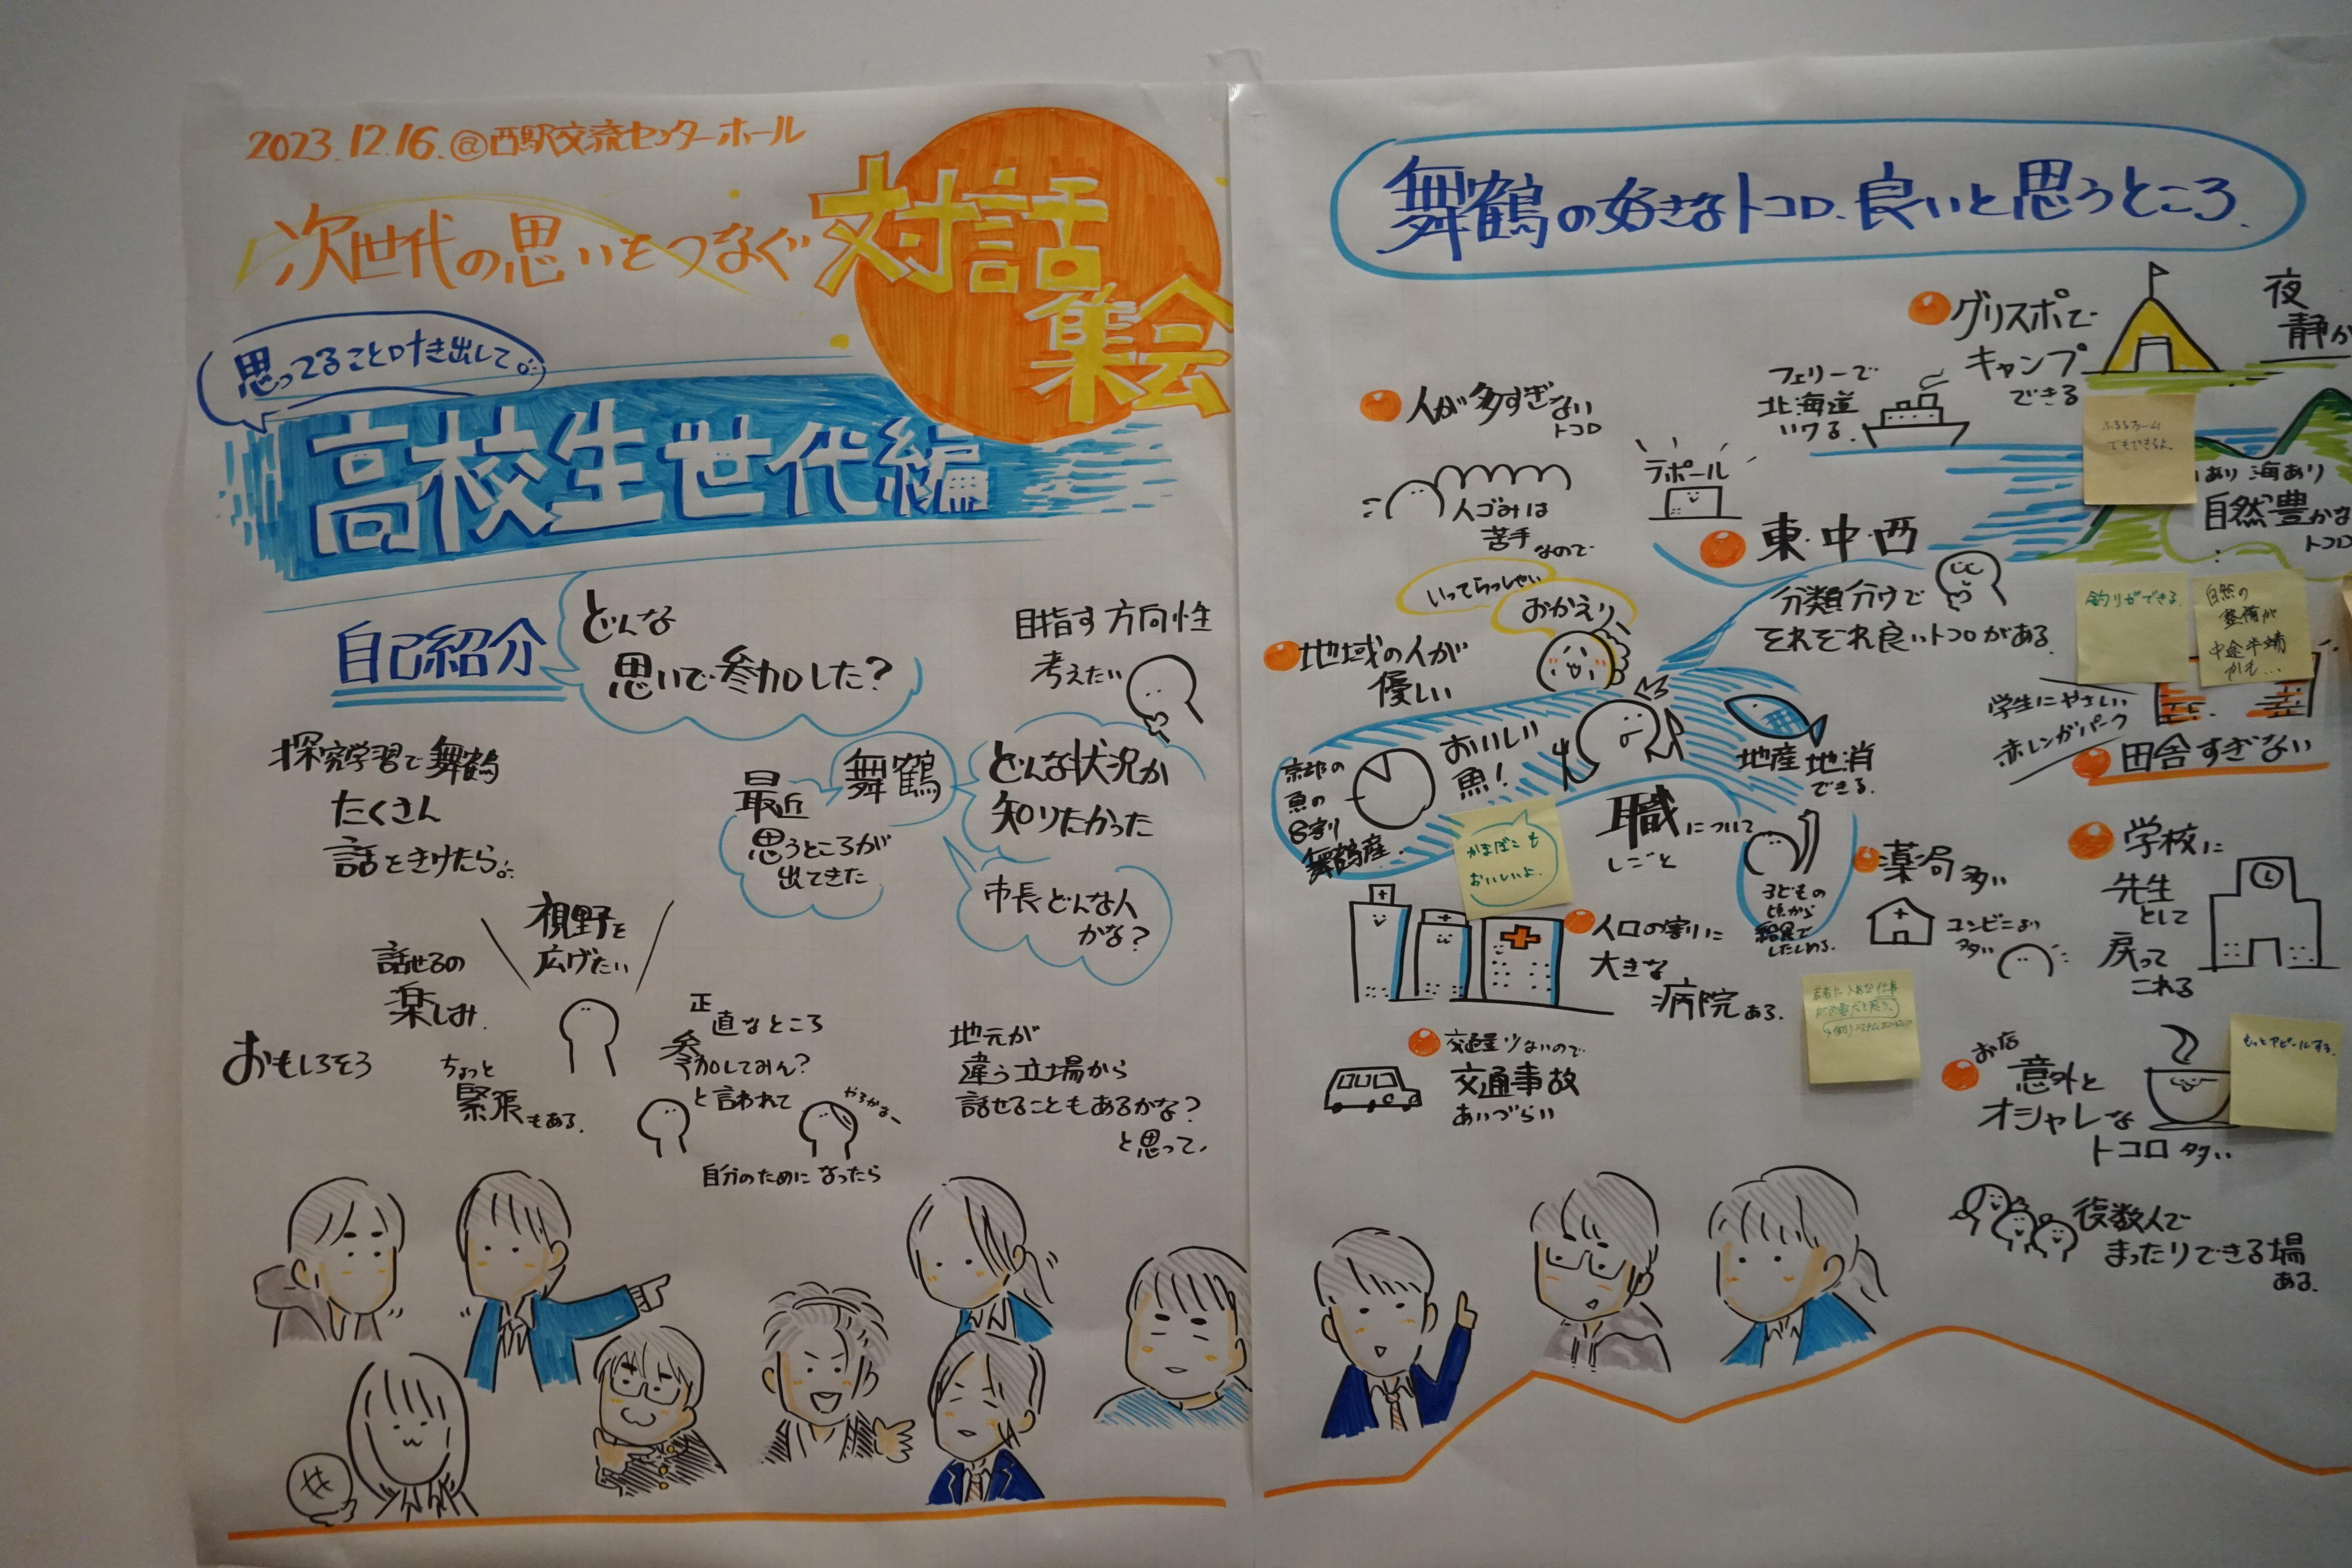 2023.12.16.@西駅交流センターホール
次世代の思いをつなぐ
対話
集会
思ってること吐き出して。
高校生世代編
自己紹介
どんな
思いで参加した?
目指す方向性
考えたい
探究学習で舞鶴
たくさん
話をきけたら。
最近
思うところが
出てきた
舞鶴
どんな状況か
知りたかった
市長どんな人
かな?
視野を
広げたい
話せるの
楽しみ.
おもしろそう
ちょっと
緊張もある.
正直なところ
参加してみん?
と言われて
やろかなー
自分のために なったら
地元が
違う立場から
話せることもあるかな?
と思って、
舞鶴の好きなトコロ、良いと思うところ.
グリスポで
キャンプ
できる
夜
静か
フェリーで
北海道
いける.
人が多すぎない
トコロ
人ゴみは
苦手なので
ラポール
ふるるファーム
でもできるよ.
あり 海あり
自然豊かな
トコロ
東・中・西
分類分けで
それぞれ良いトコロがある.
釣りができる.
自然の
整備が
中途半端
かも...
いってらっしゃい
おかえり
地域の人が
優しい
学生にやさしい
赤レンガパーク
田舎すぎない
京都の
魚の
8割り
舞鶴産.
おいしい
魚!
地産地消
できる.
かまぼこも
おいしいよ.
職について
しごと
子どもの
頃から
給食で
したしめる.
薬局多い
コンビニより
多い
学校に
先生
として
戻って
これる
人口の割に
大きな
病院ある.
交通量少ないので
交通事故
あいづらい
お店
意外と
オシャレな
トコロ多い.
もっとアピールする.
複数人で
まったりできる場
ある.